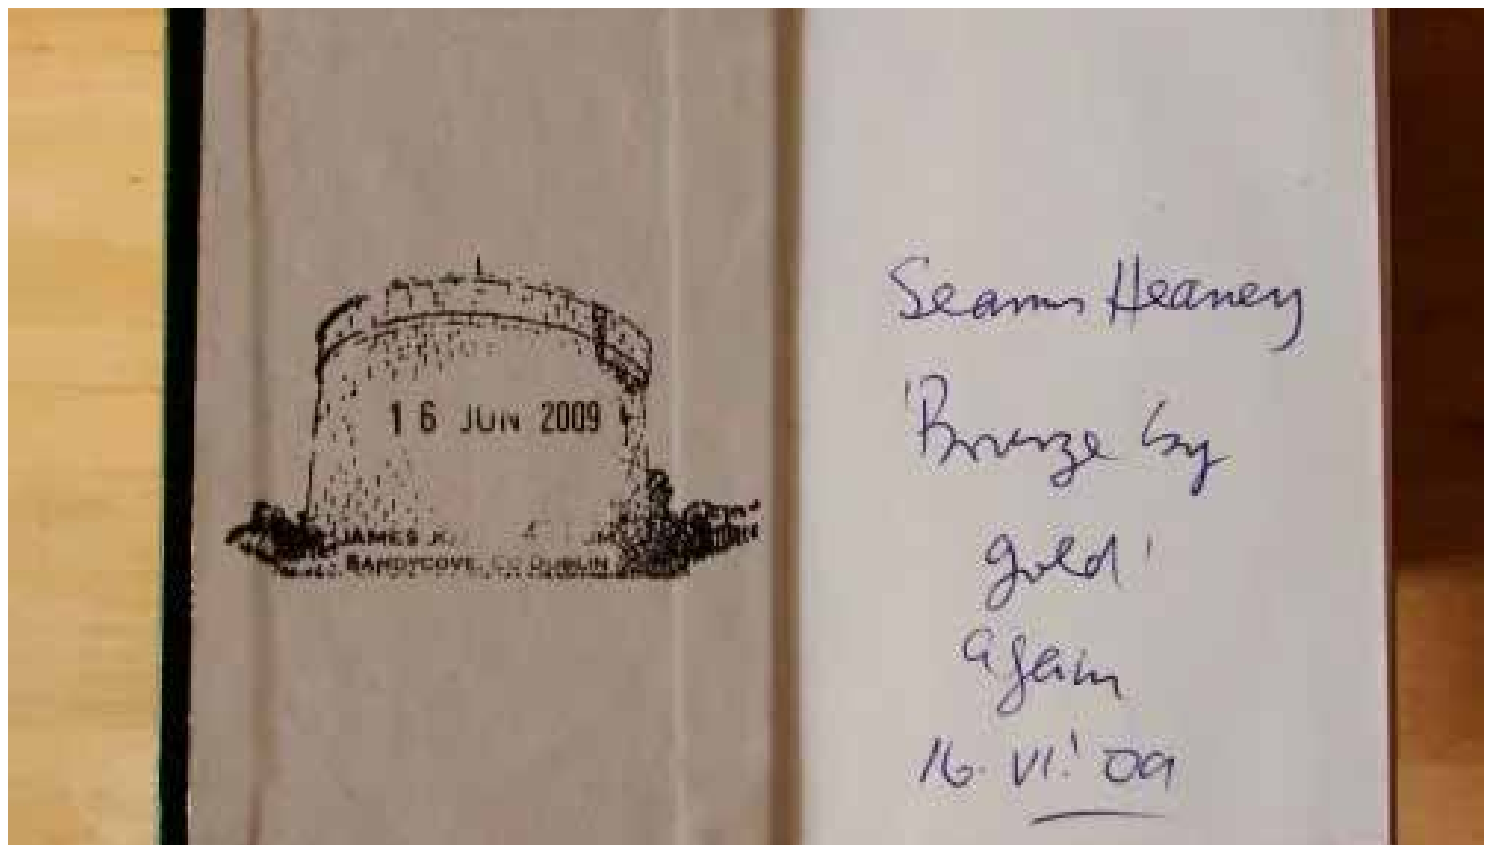 16 JUN 2009
JAMES
SANDYCOVE, CO DUBLIN
Seamus Heaney
'Bronze by
gold'
again
16.VI.'09